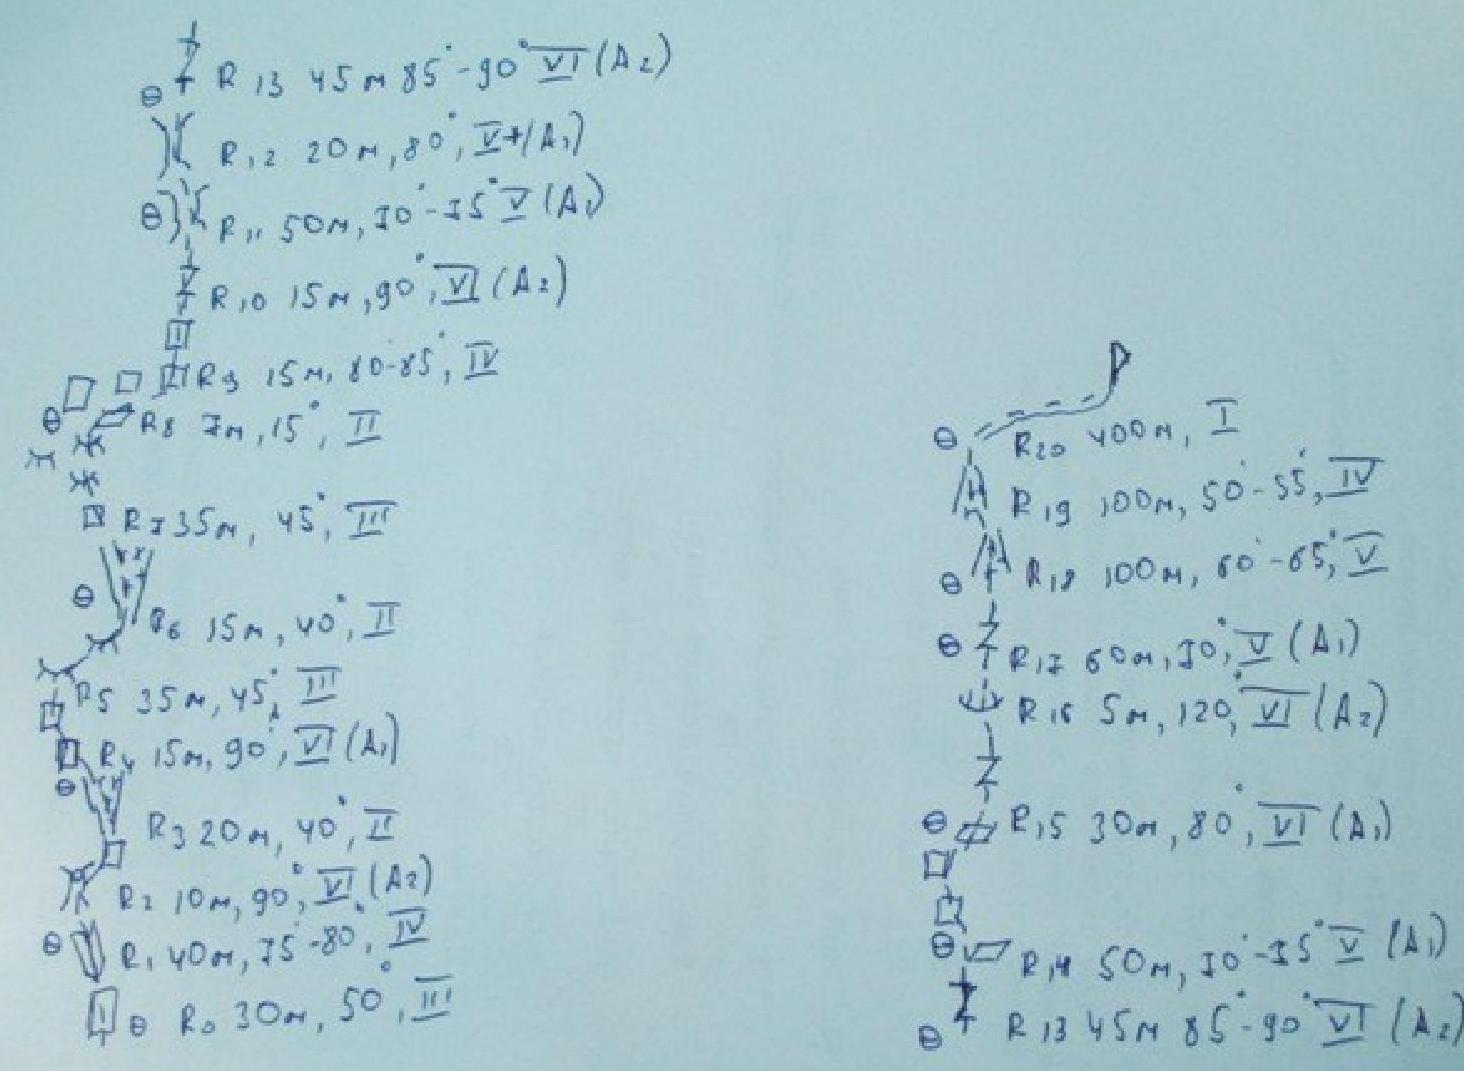 R13 45м 85°-90° VI (A2)
R12 20м, 80°, V+(A1)
R11 50м, 70°-75° V (A1)
R10 15м, 90°, VI (A2)
R9 15м, 80-85°, IV
R8 7м, 15°, II
R7 35м, 45°, III
R6 15м, 40°, II
R5 35м, 45°, III
R4 15м, 90°, VI (A1)
R3 20м, 40°, II
R2 10м, 90°, VI (A2)
R1 40м, 75°-80°, IV
R0 30м, 50°, III
R20 400м, I
R19 100м, 50°-55°, IV
R18 100м, 60°-65°, V
R17 60м, 70°, V (A1)
R16 5м, 120°, VI (A2)
R15 30м, 80°, VI (A1)
R14 50м, 70°-75° V (A1)
R13 45м 85°-90° VI (A2)